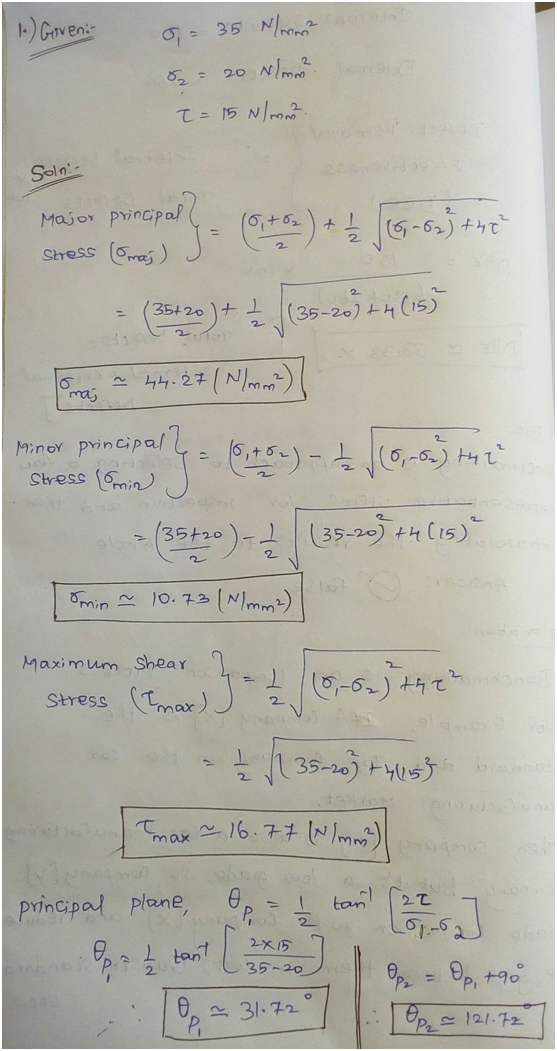 1.) Given:- σ₁ = 35 N/mm²
σ₂ = 20 N/mm².
τ = 15 N/mm².
Soln:-
Major principal stress (σmaj) } = (σ₁+σ₂/2) + 1/2 √(σ₁-σ₂)²+4τ²
= (35+20/2) + 1/2 √(35-20)²+4(15)²
σmaj ≃ 44.27 (N/mm²)
Minor principal stress (σmin) } = (σ₁+σ₂/2) - 1/2 √(σ₁-σ₂)²+4τ²
= (35+20/2) - 1/2 √(35-20)²+4(15)²
σmin ≃ 10.73 (N/mm²)
Maximum shear stress (τmax) } = 1/2 √(σ₁-σ₂)²+4τ²
= 1/2 √(35-20)²+4(15)²
τmax ≃ 16.77 (N/mm²)
principal plane, θp₁ = 1/2 tan⁻¹ [2τ/σ₁-σ₂]
θp₁ = 1/2 tan⁻¹ [2×15/35-20]
∴ θp₁ ≃ 31.72°
θp₂ = θp₁ +90°
∴ θp₂ ≃ 121.72°